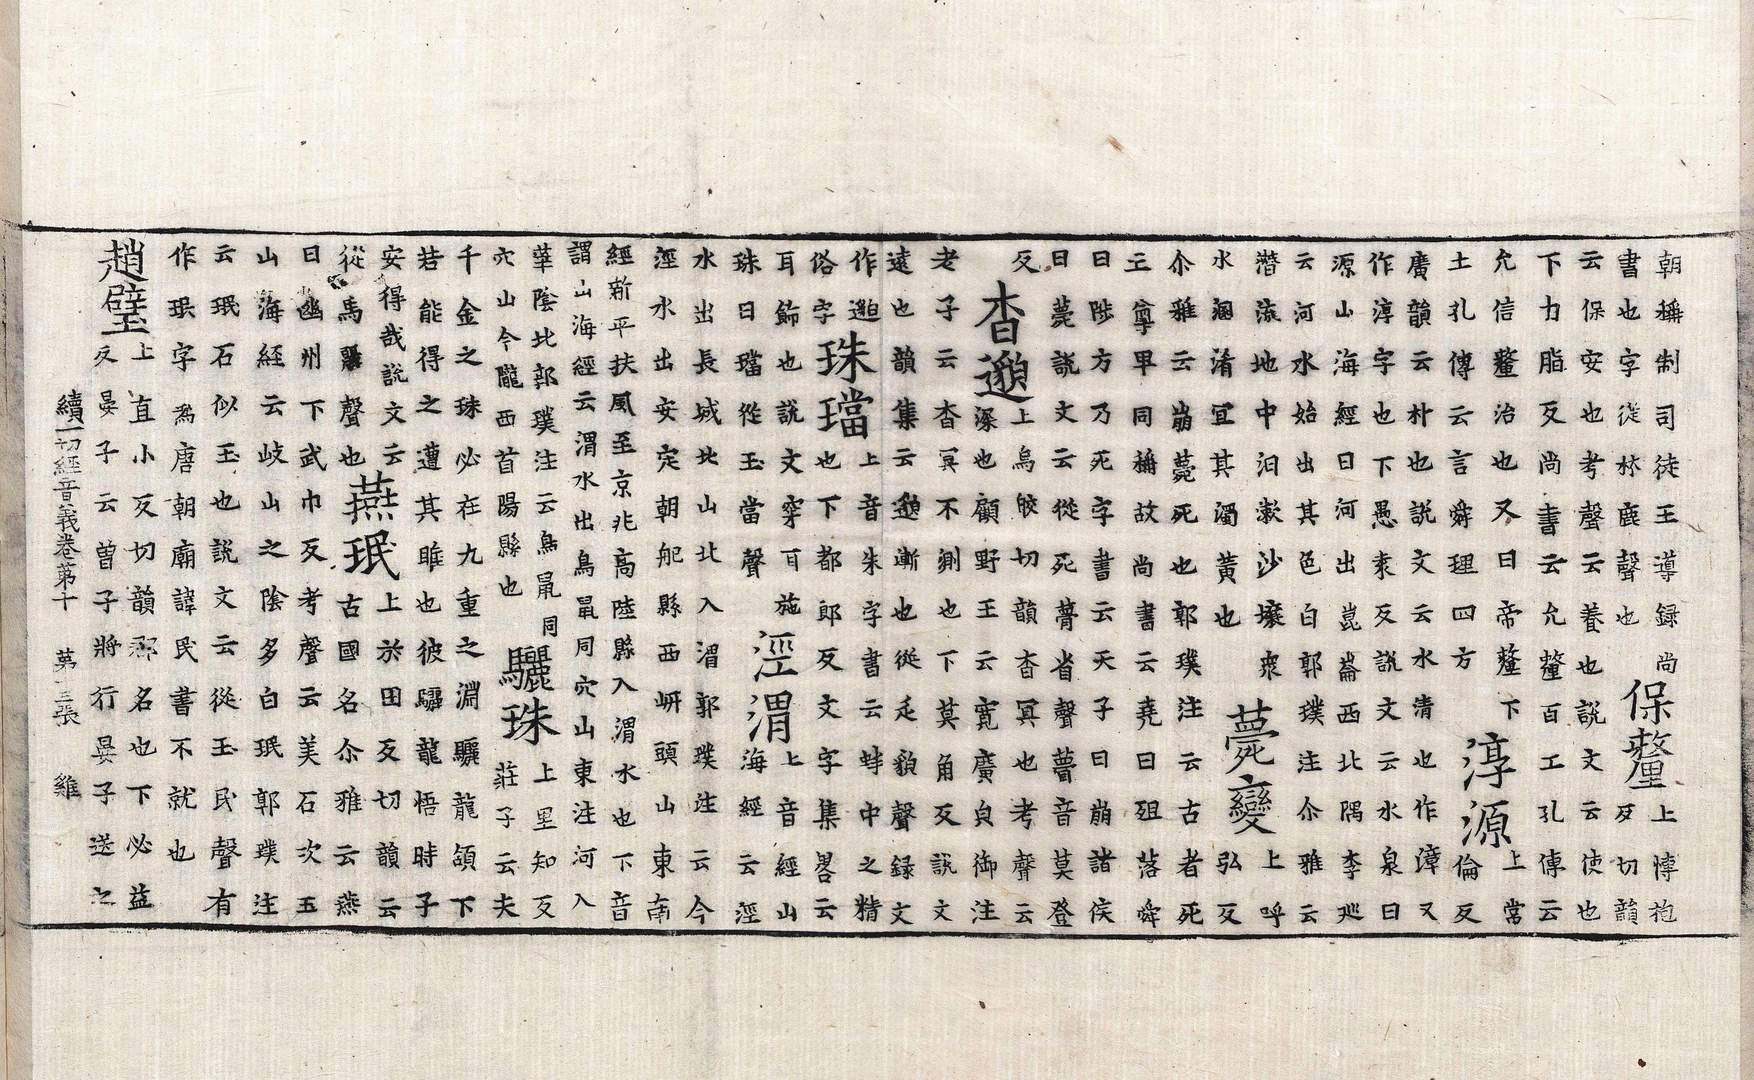 朝稱制司徒王導録尚
書也字從林鹿聲也
保釐
上博抱
反切韻
云保安也考聲云養也說文云使也
下力脂反尚書云允釐百工孔傳云
允信釐治也又曰帝釐下
土孔傳云言舜理四方
淳源
上常
倫反
廣韻云朴也說文云水清也作漳又
作淳字也下愚袁反說文云水泉曰
源山海經曰河出崑崙西北隅李巡
云河水始出其色白郭璞注尒雅云
潛流地中汩漱沙壤衆
水溷淆宜其濁黃也
薨變
上呼
弘反
尒雅云崩薨死也郭璞注云古者死
亡尊卑同稱故尚書云堯曰殂落舜
曰陟方乃死字書云天子曰崩諸侯
曰薨說文云從死瞢省聲瞢音莫登
反
杳邈
上烏皎切韻杳冥也考聲云
深也顧野王云寬廣皃御注
老子云杳冥不測也下莫角反說文
遠也韻集云邈漸也從辵貌聲録文
作邈
俗字
珠璫
上音朱字書云蚌中之精
也下都郎反文字集畧云
耳飾也說文穿耳施
珠曰璫從玉當聲
涇渭
上音經山
海經云涇
水出長城北山北入渭郭璞注云今
涇水出安定朝郍縣西岍頭山東南
經新平扶風至京兆高陸縣入渭水也下音
謂山海經云渭水出鳥鼠同穴山東注河入
華陰北郭璞注云鳥鼠同
穴山今隴西首陽縣也
驪珠
上里知反
莊子云夫
千金之珠必在九重之淵驪龍頷下
若能得之遭其睡也彼驪龍悟時子
安得哉說文云
從馬麗聲也
燕珉
上於田反切韻云
古國名尒雅云燕
曰幽州下武巾反考聲云美石次玉
山海経云岐山之陰多白珉郭璞注
云珉石似玉也說文云從玉民聲有
作珉字爲唐朝廟諱民書不就也
趙璧
上直小反切韻郡名也下必益
反晏子云曾子將行晏子送之
續一切經音義卷第十 第十三張 雞